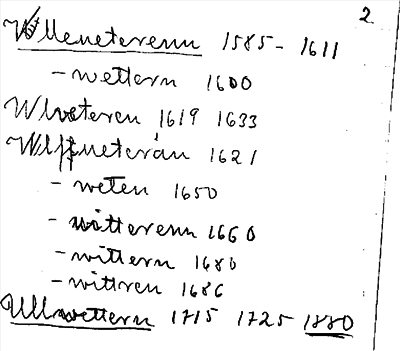 2
Wlleneterenn 1585 - 1611
- wettern 1600
Wlveteren 1619 1633
Wlffneterån 1621
- weten 1650
- witterenn 1660
- wittern 1680
- wittren 1686
Ullwettern 1715 1725 1880